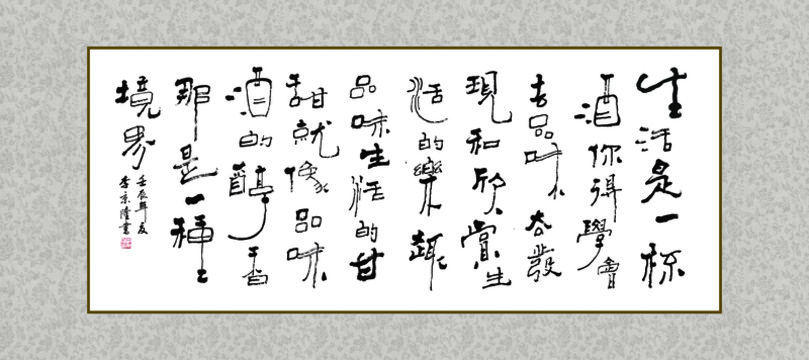 生活是一杯
酒你得學會
去品味去發
現和欣賞生
活的樂趣
品味生活的甘
甜就像品味
酒的醇香
那是一種
境界
壬辰年夏